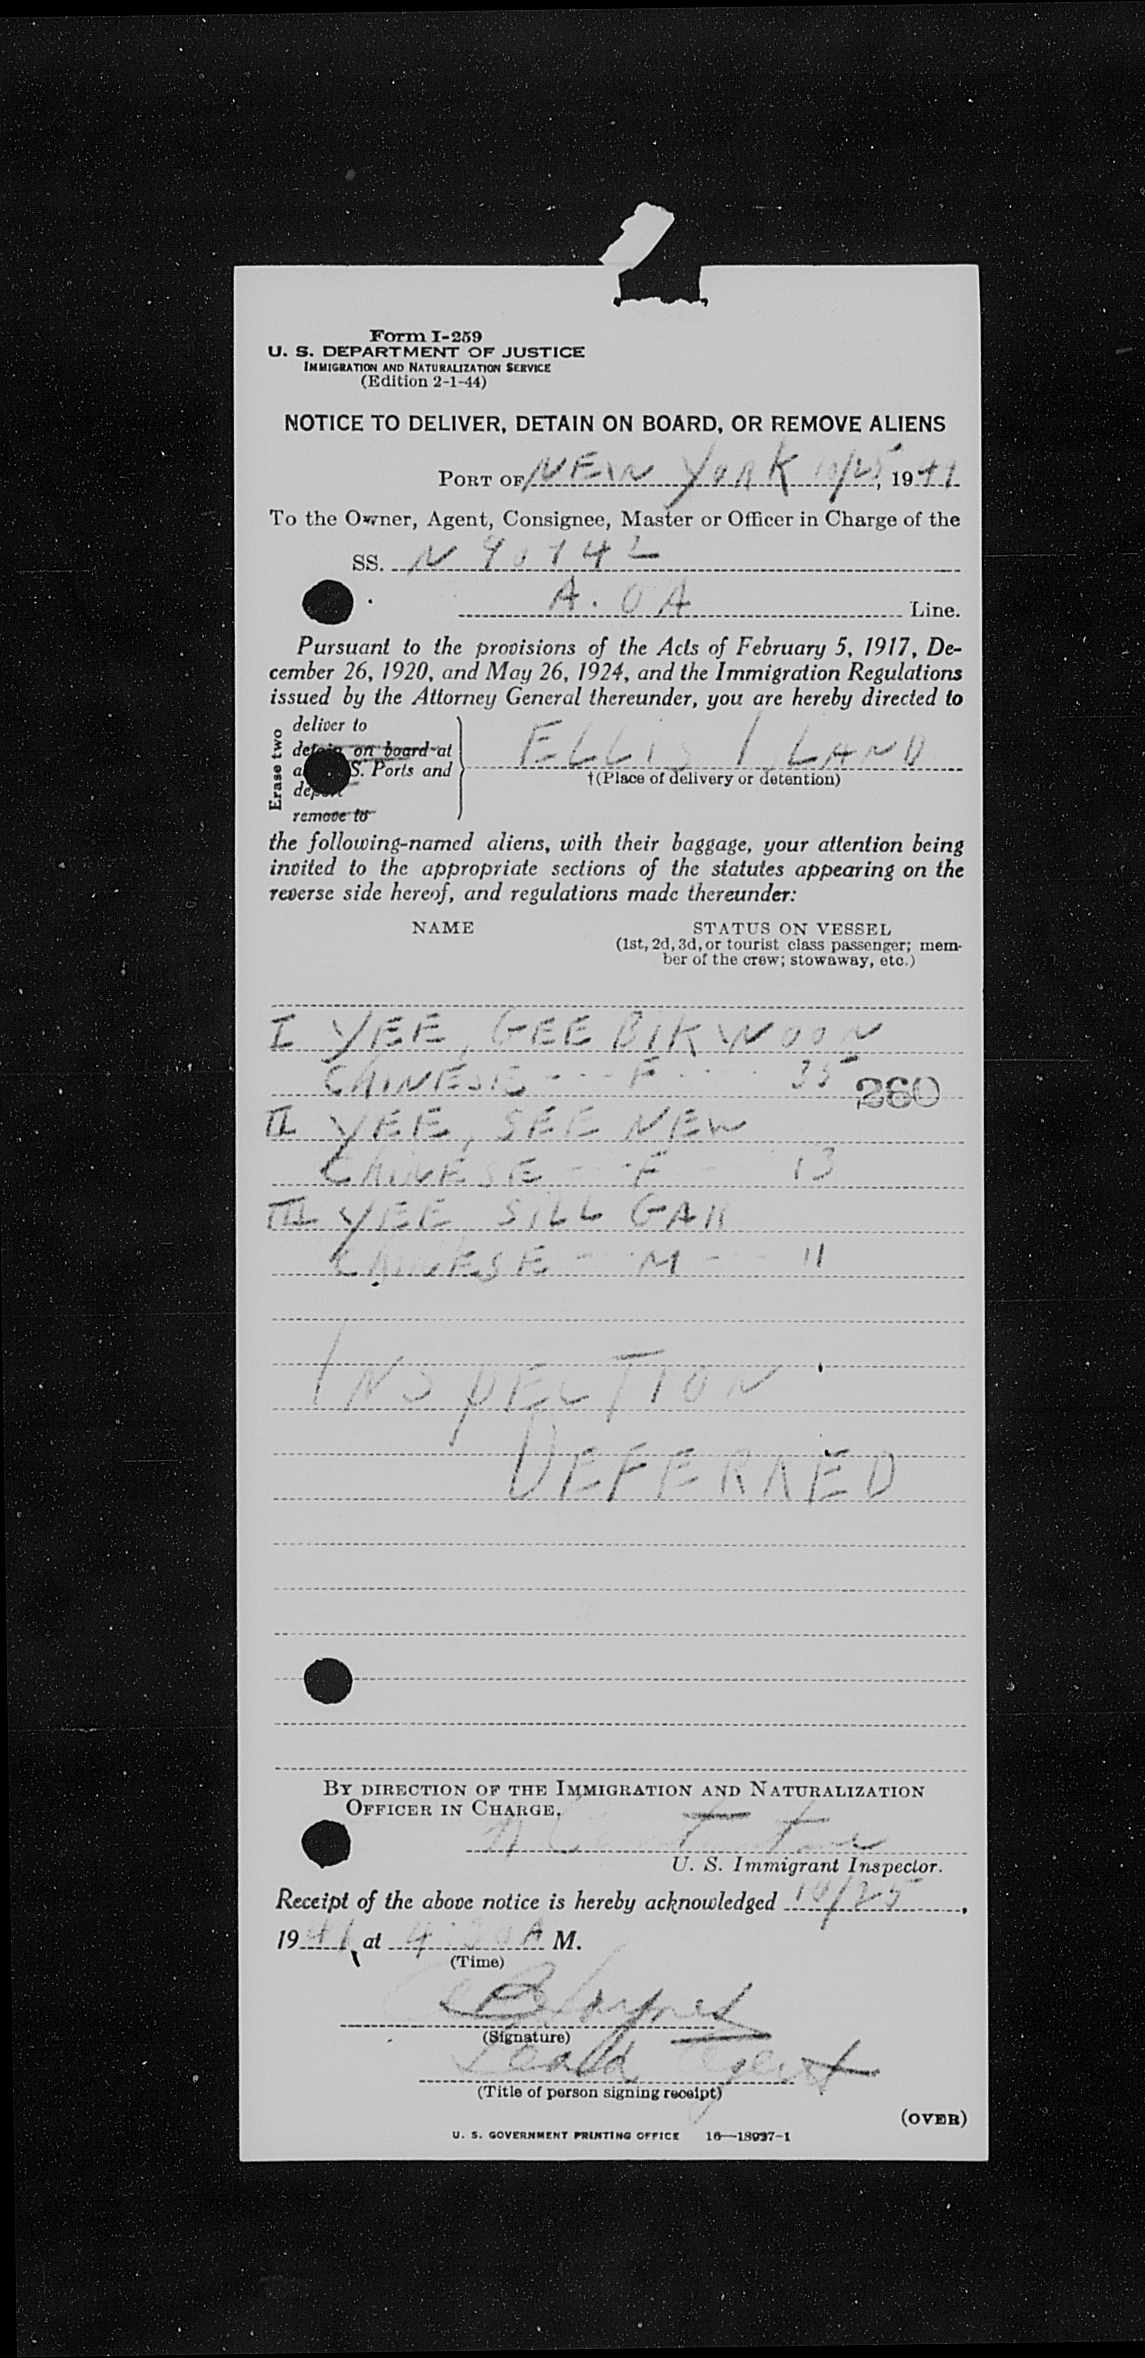 Form I-259
U. S. DEPARTMENT OF JUSTICE
IMMIGRATION AND NATURALIZATION SERVICE
(Edition 2-1-44)
NOTICE TO DELIVER, DETAIN ON BOARD, OR REMOVE ALIENS
PORT OF NEW YORK 10/25, 19
To the Owner, Agent, Consignee, Master or Officer in Charge of the
SS. N 90742
A. OA Line.
Pursuant to the provisions of the Acts of February 5, 1917, De-
cember 26, 1920, and May 26, 1924, and the Immigration Regulations
issued by the Attorney General thereunder, you are hereby directed to
Erase two
deliver to
detain on board at
S. Ports and
remove to
ELLIS ISLAND
†(Place of delivery or detention)
the following-named aliens, with their baggage, your attention being
invited to the appropriate sections of the statutes appearing on the
reverse side hereof, and regulations made thereunder:
NAME STATUS ON VESSEL
(1st, 2d, 3d, or tourist class passenger; mem-
ber of the crew; stowaway, etc.)
I YEE, GEE BIK WOON
CHINESE - - - F - - - 35
260
II YEE, SEE NEW
CHINESE - - - F - 13
III YEE SILL GAN
CHINESE - - M - - 11
INSPECTION
DEFERRED
BY DIRECTION OF THE IMMIGRATION AND NATURALIZATION
OFFICER IN CHARGE.
U. S. Immigrant Inspector.
Receipt of the above notice is hereby acknowledged 10/25,
19 at 4:30 A M.
(Time)
(Signature)
Agent
(Title of person signing receipt)
(OVER)
U. S. GOVERNMENT PRINTING OFFICE 16—18937-1